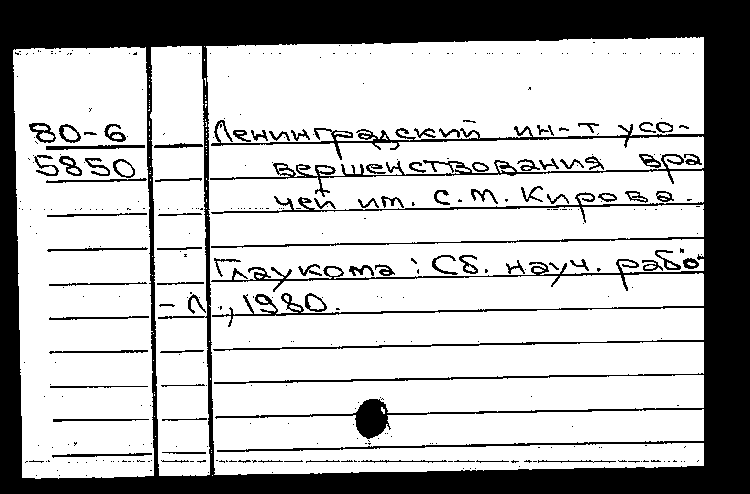 80-6 Ленинградский ин-т усо-
5850 вершенствования вра
чей им. С.М. Кирова.
Глаукома: Сб. науч. рабо
- Л., 1980.